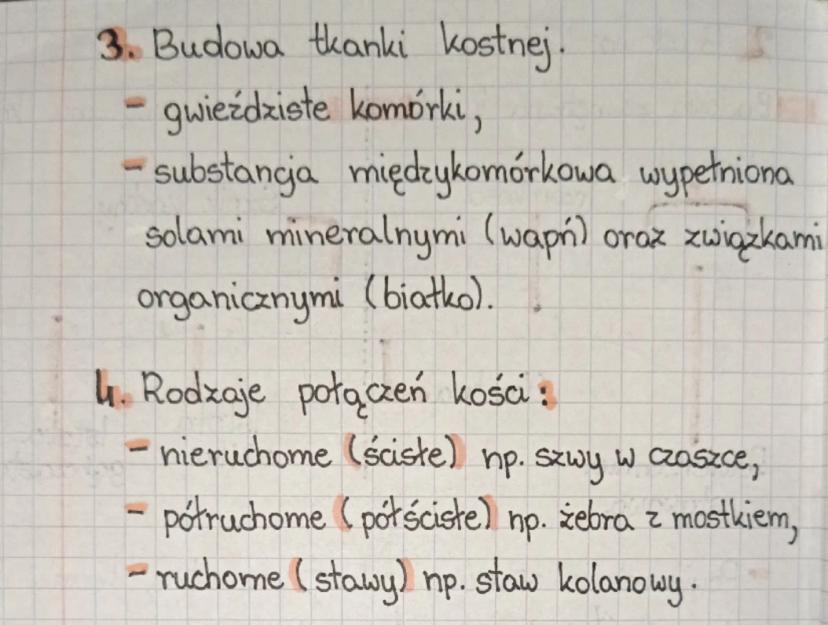 3. Budowa tkanki kostnej.
- gwieździste komórki,
- substancja międzykomórkowa wypełniona
solami mineralnymi (wapń) oraz związkami
organicznymi (białko).
4. Rodzaje połączeń kości:
- nieruchome (ścisłe) np. szwy w czaszce,
- półruchome (półścisłe) np. żebra z mostkiem,
- ruchome (stawy) np. staw kolanowy.